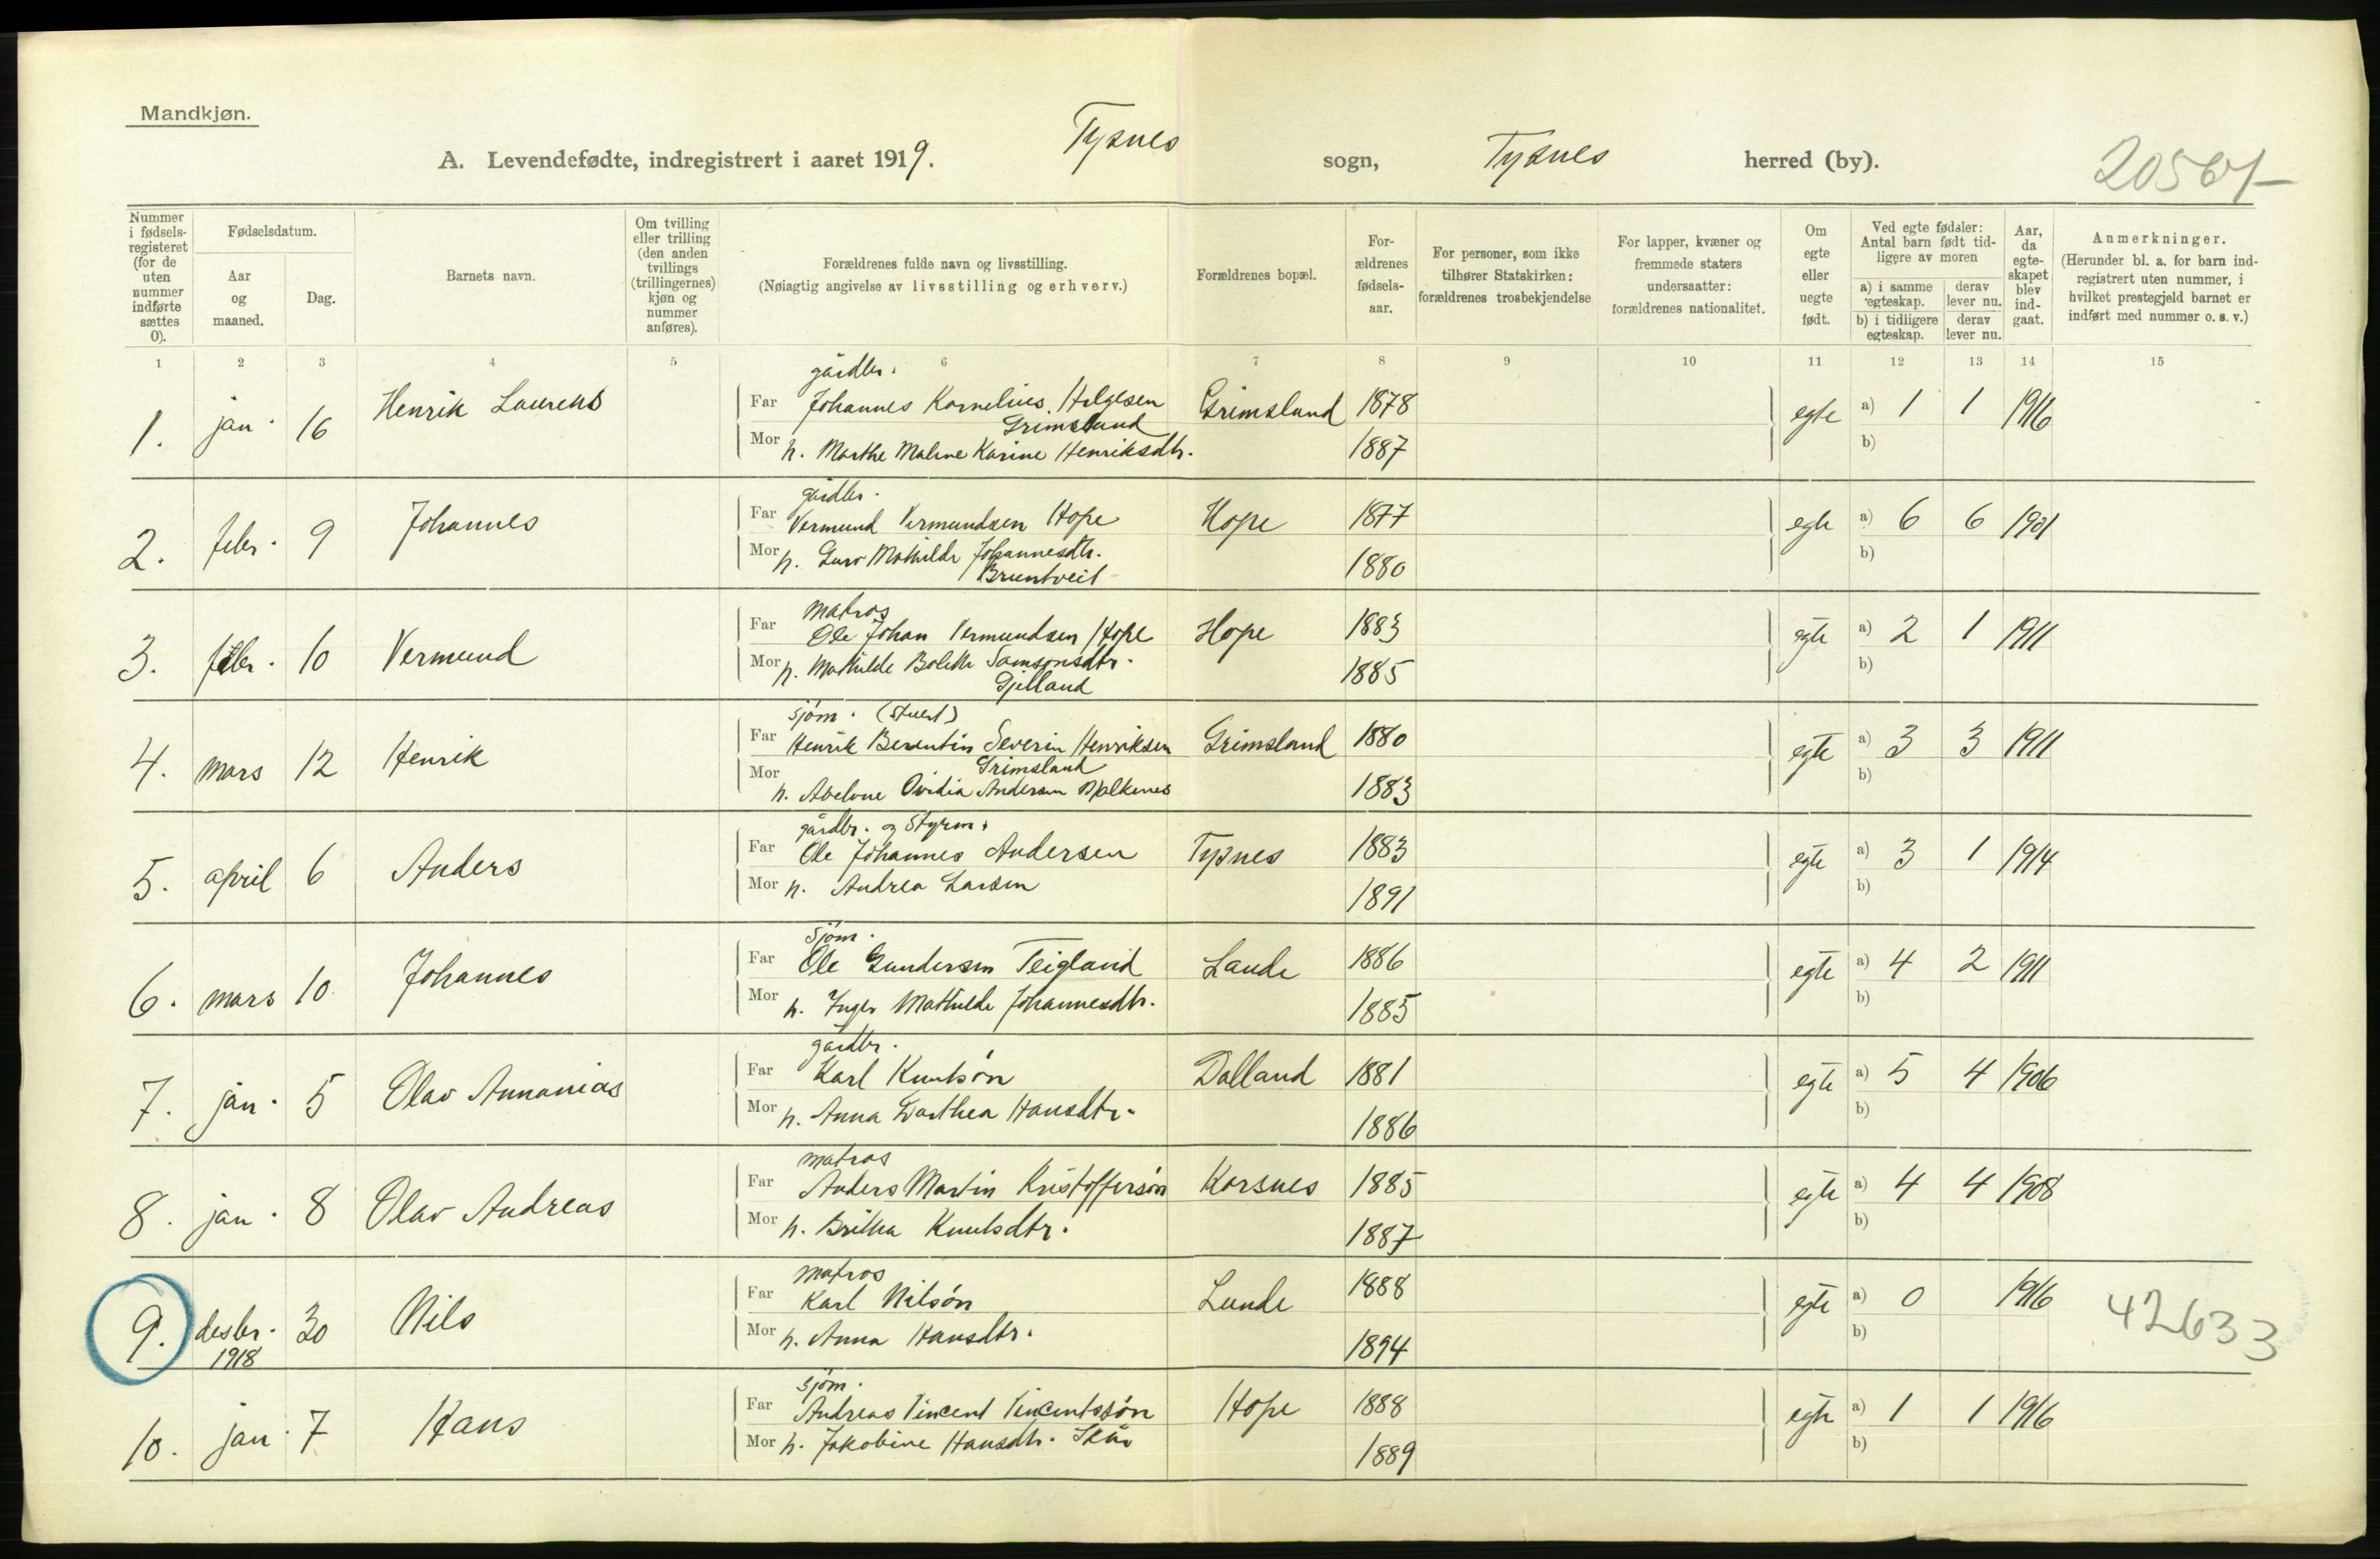 Mandkjøn.
A. Levendefødte, indregistrert i aaret 1919. Tysnes sogn, Tysnes herred (by).
Nummer i fødsels-registeret (for de uten nummer indførte sættes 0).
Fødselsdatum.
Aar og maaned.
Dag.
Barnets navn.
Om tvilling eller trilling (den anden tvillings (trillingernes) kjøn og nummer anføres).
Forældrenes fulde navn og livsstilling.
(Nøiagtig angivelse av livsstilling og erhverv.)
Forældrenes bopæl.
For-ældrenes fødsels-aar.
For personer, som ikke tilhører Statskirken: forældrenes trosbekjendelse
For lapper, kvæner og fremmede staters undersaatter: forældrenes nationalitet.
Om egte eller uegte født.
Ved egte fødsler: Antal barn født tid-ligere av moren
a) i samme egteskap. derav lever nu.
b) i tidligere egteskap. derav lever nu.
Aar, da egte-skapet blev ind-gaat.
Anmerkninger.
(Herunder bl. a. for barn ind-registrert uten nummer, i hvilket prestegjeld barnet er indført med nummer o. s. v.)
1 2 3 4 5 6 7 8 9 10 11 12 13 14 15
gårdbr.
1. jan. 16 Henrik Laurens Far Johannes Kornelius Helgesen Grimsland 1878 egte a) 1 1 1916
Grimsland
Mor h. Marthe Malene Karine Henriksdtr. 1887 b)
gårdbr.
2. febr. 9 Johannes Far Vermund Vermundsen Hope Hope 1877 egte a) 6 6 1901
Mor h. Guro Mathilde Johannesdtr. 1880 b)
Bruntveit
matros
3. febr. 10 Vermund Far Ole Johan Vermundsen Hope Hope 1883 egte a) 2 1 1911
Mor h. Mathilde Bolette Samsonsdtr. 1885 b)
Gjelland
sjøm. (stuert)
4. mars 12 Henrik Far Henrik Berentin Severin Henriksen Grimsland 1880 egte a) 3 3 1911
Grimsland
Mor h. Abelone Ovidia Andersen 1883 b)
gårdbr. og styrm.
5. april 6 Anders Far Ole Johannes Andersen Tysnes 1883 egte a) 3 1 1914
Mor h. Andrea Larsen 1891 b)
sjøm.
6. mars 10 Johannes Far Ole Gundersen Teigland Lande 1886 egte a) 4 2 1911
Mor h. Inger Mathilde Johannesdtr. 1885 b)
gårdbr.
7. jan. 5 Olav Annanias Far Karl Knutsøn Dalland 1881 egte a) 5 4 1906
Mor h. Anna Dorthea Hansdtr. 1886 b)
matros
8. jan. 8 Olav Andreas Far Anders Martin Kristoffersøn Korsnes 1885 egte a) 4 4 1908
Mor h. Britha Knutsdtr. 1887 b)
matros
9. desbr. 1918 30 Nils Far Karl Nilsøn Lunde 1888 egte a) 0 1916 42633
Mor h. Anna Hansdtr. 1894 b)
sjøm.
10. jan. 7 Hans Far Andreas Vincent Vincentssøn Hope 1888 egte a) 1 1 1916
Mor h. Jakobine Hansdtr. 1889 b)